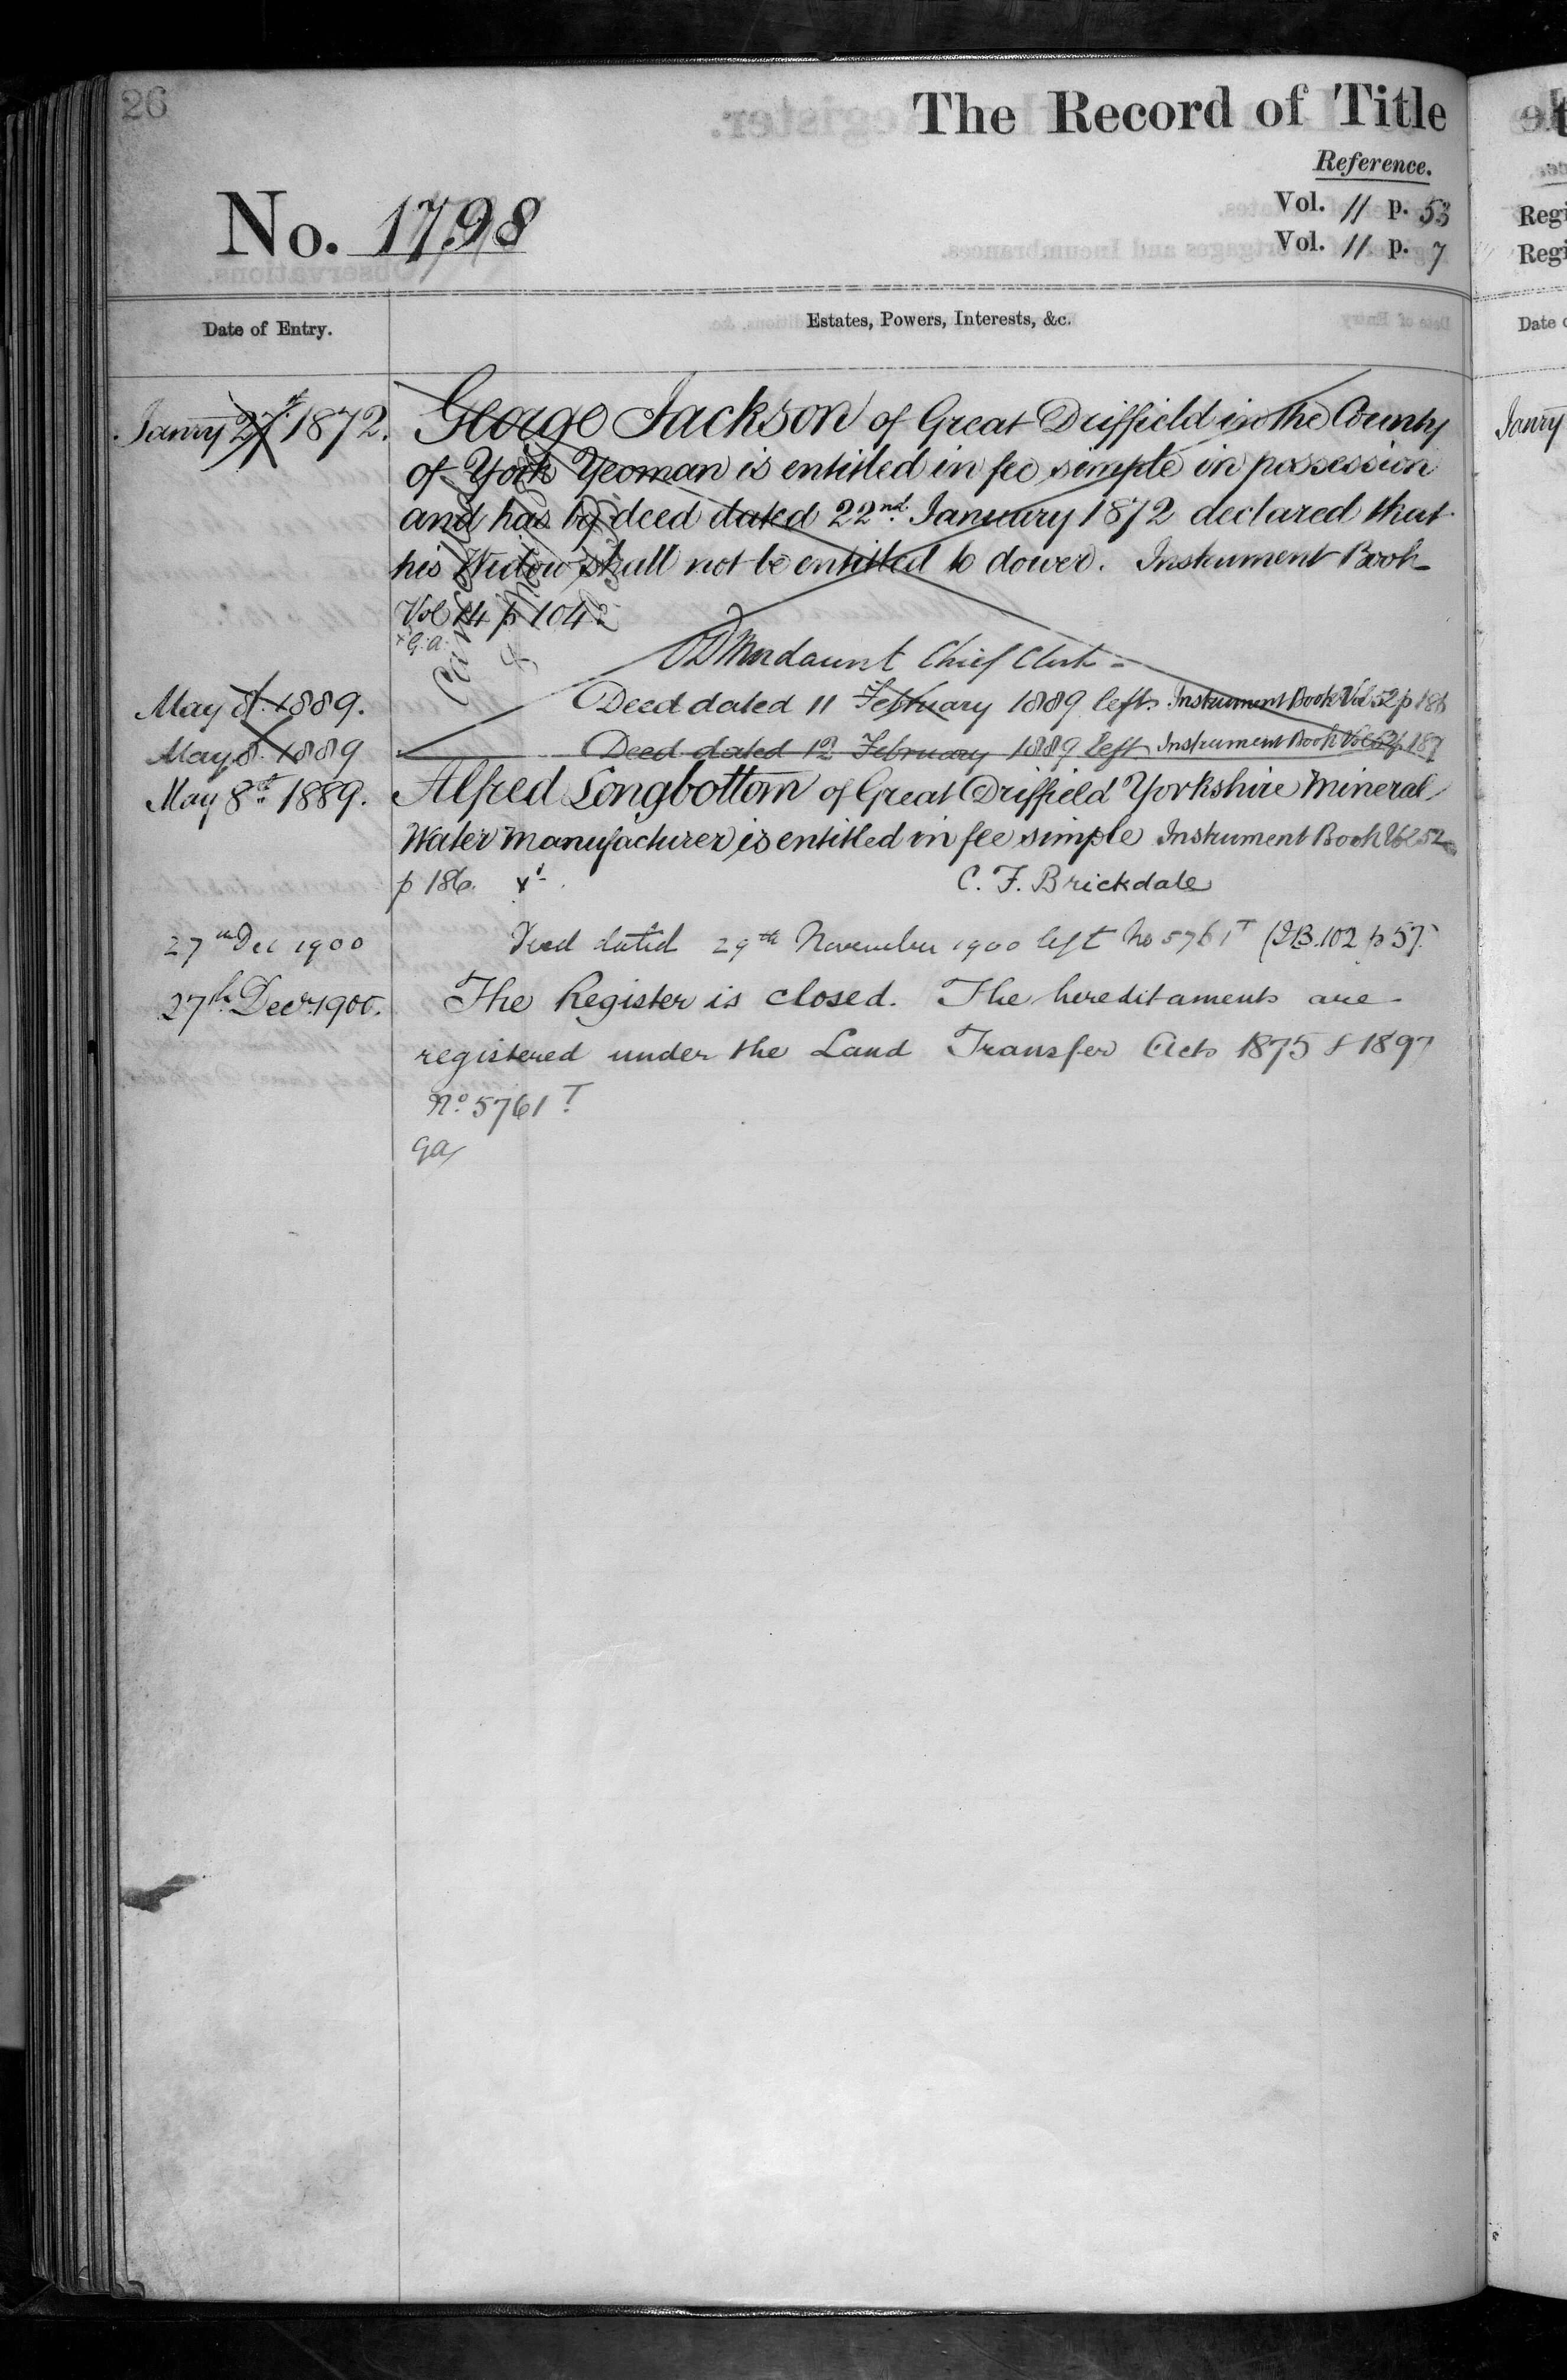 26
The Record of Title
Reference.
No. 1798
Vol. 11 p. 53
Vol. 11 p. 7
Date of Entry.
Estates, Powers, Interests, &c.
Janry 27th 1872.
George Jackson of Great Driffield in the County
of York Yeoman is entitled in fee simple in possession
and has by deed dated 22nd January 1872 declared that
his Widow shall not be entitled to dower. Instrument Book
Vol 14 p 104
G.A.
Mordaunt Chief Clerk
May 8th 1889.
Deed dated 11 February 1889 left. Instrument Book Vol 52 p 186
May 8. 1889
Deed dated 12 February 1889 left Instrument Book Vol 52 p 187
May 8th 1889.
Alfred Longbottom of Great Driffield Yorkshire Mineral
Water Manufacturer is entitled in fee simple Instrument Book Vol 52
p 186.
C. F. Brickdale
27th Dec 1900
Deed dated 29th November 1900 left No 5761T (I.B. 102 p 57)
27th Decr. 1900.
The Register is closed. The hereditaments are
registered under the Land Transfer Acts 1875 & 1897
No. 5761T
GA
Regi
Regi
Date
Janry